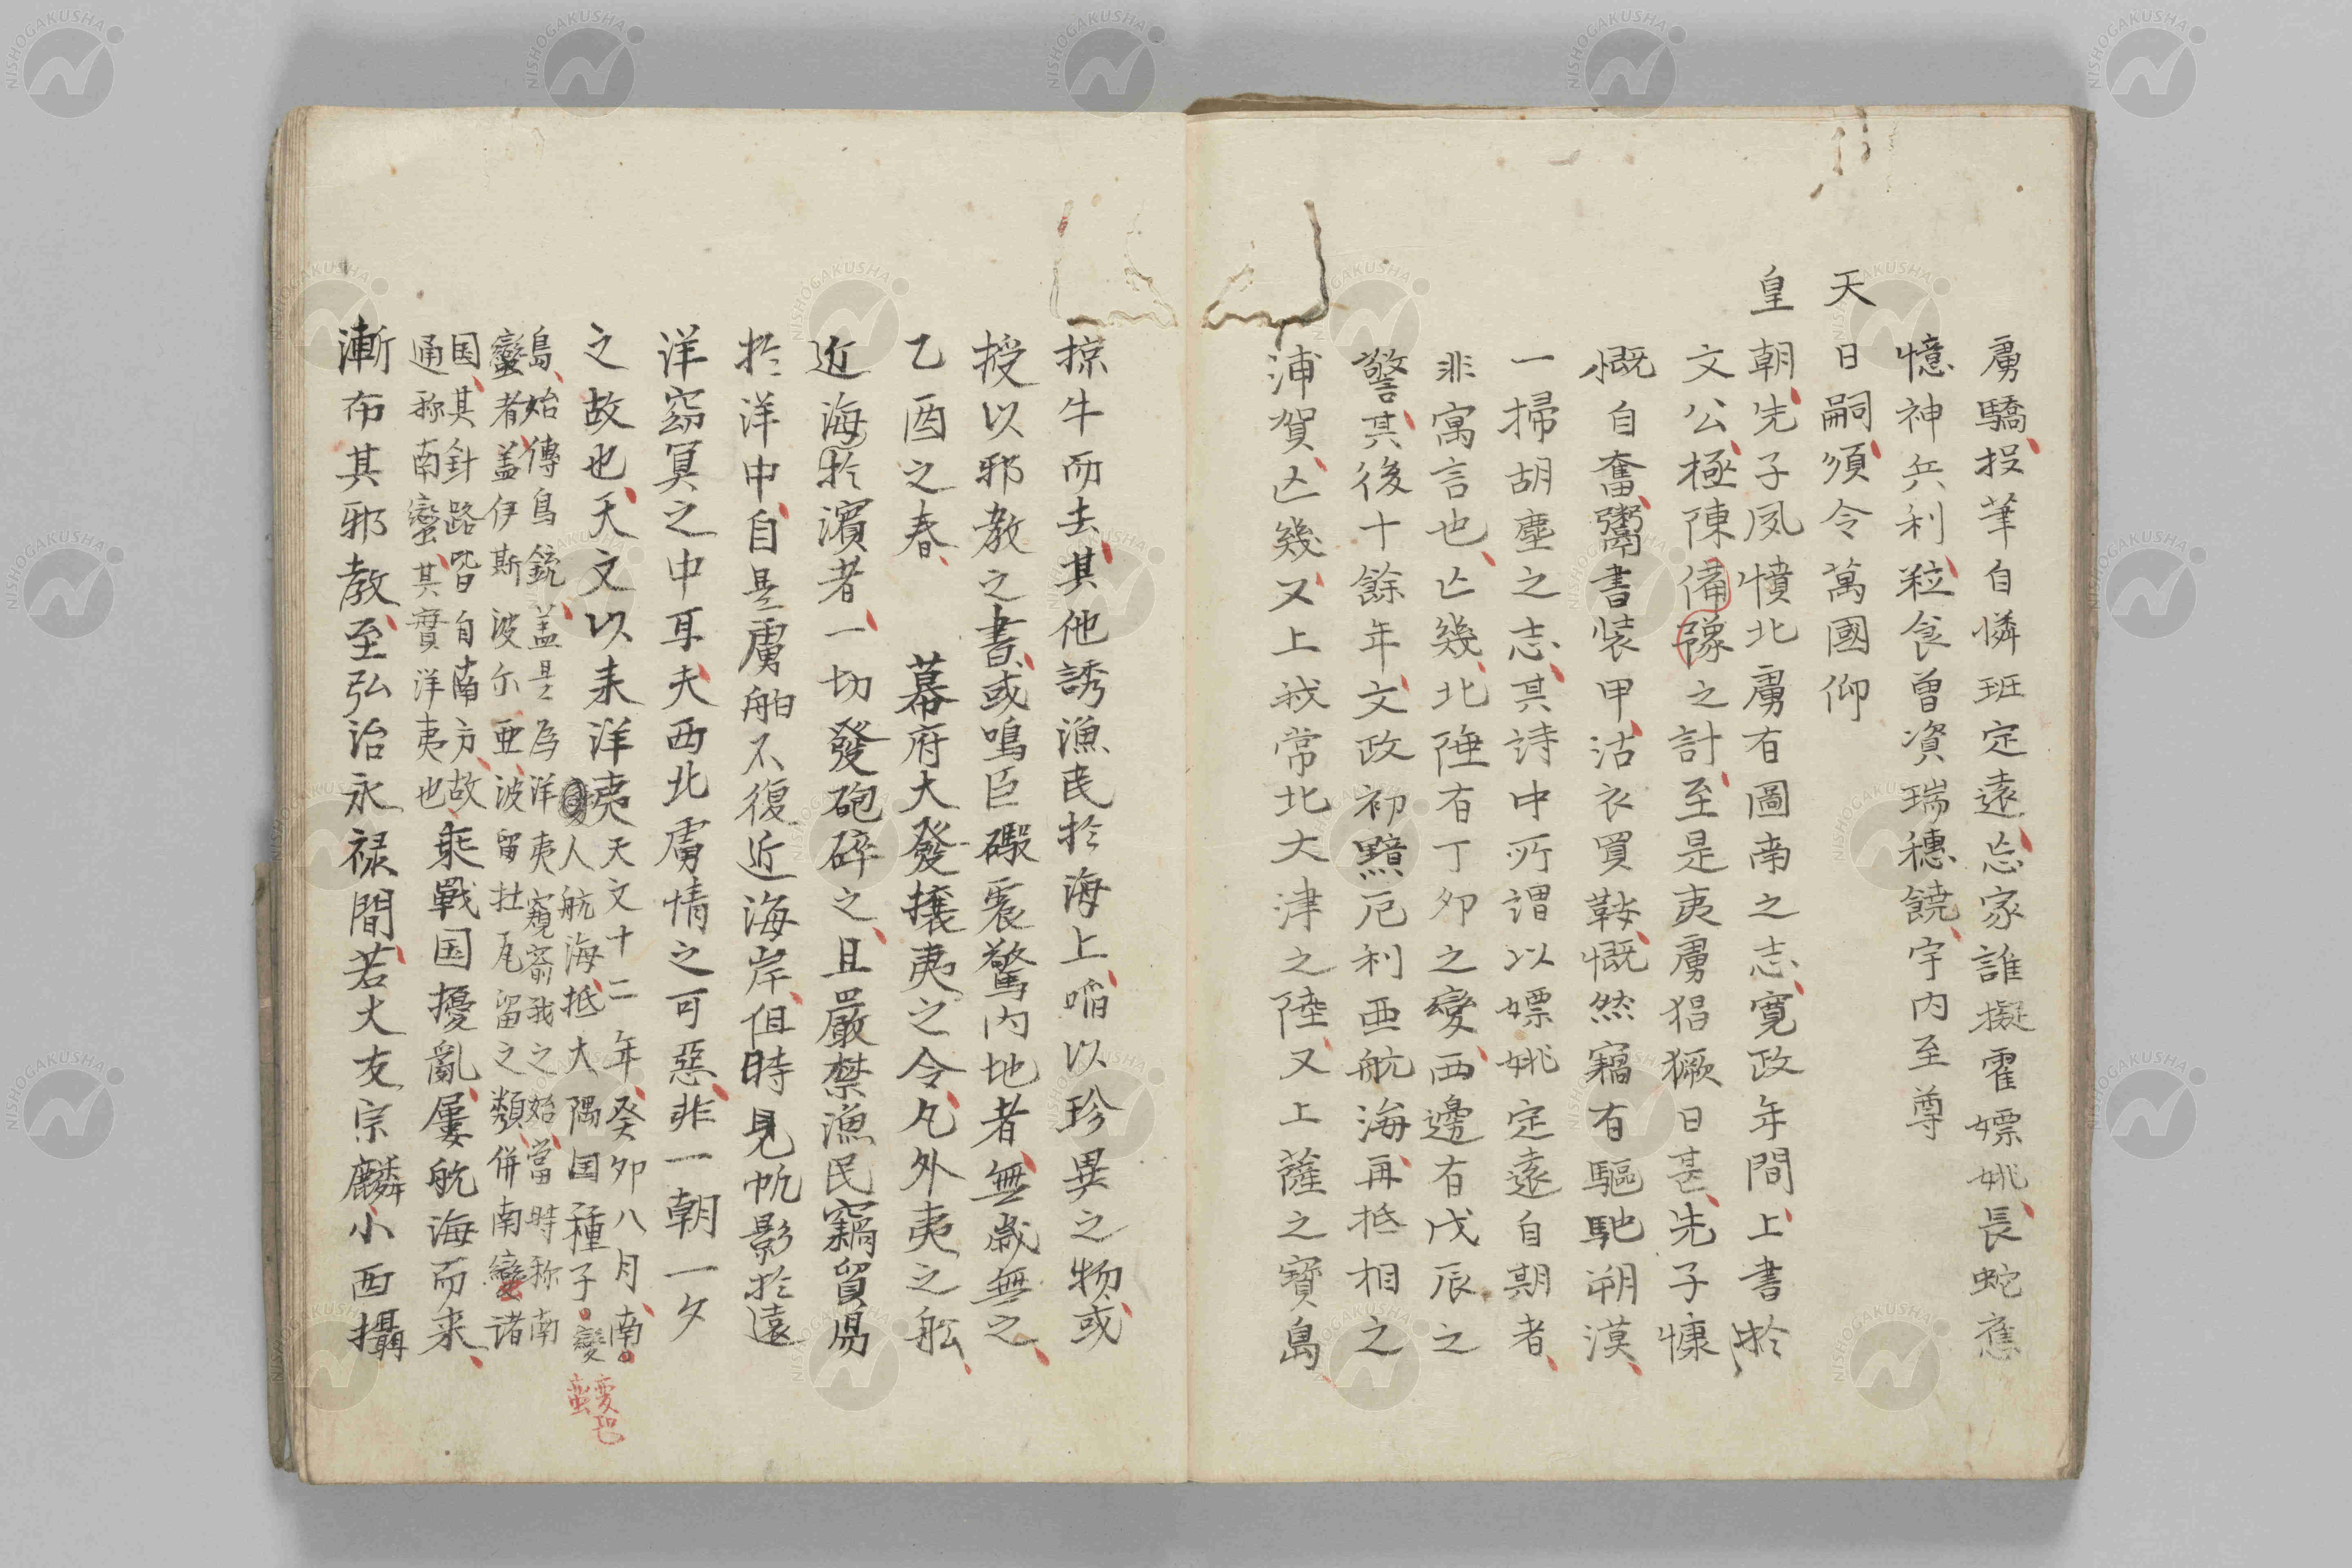 虜驕投筆自憐班定遠忘家誰擬霍嫖姚長蛇應
憶神兵利粒食曾資瑞穗饒宇内至尊
天日嗣須令萬國仰
皇朝先子夙憤北虜有圖南之志寛政年間上書於
文公極陳備豫之計至是夷虜猖獗日甚先子慷
慨自奮鬻書装甲沽衣買鞍慨然竊有驅馳朔漠
一掃胡塵之志其詩中所謂以嫖姚定遠自期者
非寓言也亡幾北陲有丁卯之變西邊有戊辰之
警其後十餘年文政初黯厄利亜航海再抵相之
浦賀亡幾又上我常北大津之陸又上薩之寶島
掠牛而去其他誘漁民於海上啗以珍異之物或
授以邪教之書或鳴巨礮震驚内地者無歳無之
乙酉之春 幕府大發攘夷之令凡外夷之舩
近海於濱者一切發砲碎之且嚴禁漁民竊貿易
於洋中自是虜舶不復近海岸但時見帆影於遠
洋窈冥之中耳夫西北虜情之可惡非一朝一夕
之故也天文以来洋夷
天文十二年癸卯八月南
人航海抵大隅国種子變
蛮
變恐
島始傳鳥銃蓋是為洋夷窺窬我之始當時称南
蠻者蓋伊斯波尓亜波留杜瓦留之類併南變諸
国其針路皆自南方故
通称南蠻其實洋夷也
乗戰国擾亂屢航海而来
漸布其邪教至弘治永禄間若大友宗麟小西攝
NISHOGAKUSHA